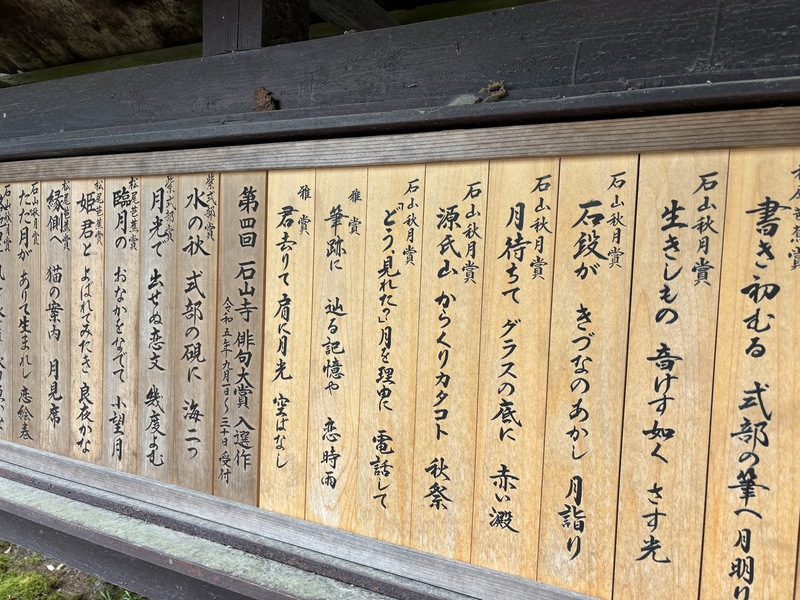 松尾芭蕉賞
書き初むる 式部の筆へ 月明り
石山秋月賞
生きしもの 音けす如く さす光
石山秋月賞
石段が きづなのあかし 月詣り
石山秋月賞
月待ちて グラスの底に 赤い澱
石山秋月賞
源氏山 からくりカタコト 秋祭
石山秋月賞
「どう、見れた?」月を理由に 電話して
雅賞
筆跡に 辿る記憶や 恋時雨
雅賞
君去りて 肩に月光 空ばなし
第四回 石山寺 俳句大賞 入選作
令和五年九月一日〜三十日受付
紫式部賞
水の秋 式部の硯に 海二つ
紫式部賞
月光で 出せぬ恋文 幾度よむ
松尾芭蕉賞
臨月の おなかをなでて 小望月
松尾芭蕉賞
姫君と よばれてみたき 良夜かな
松尾芭蕉賞
縁側へ 猫の案内 月見席
石山秋月賞
ただ月が ありて生まれし 恋絵巻
石山秋月賞